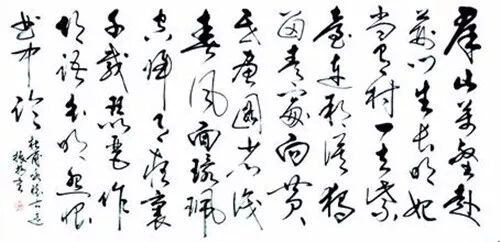 群山萬壑赴
荆门生长明妃
尚有村一去紫
臺连朔漠独
留青冢向黄
昏画图省识
春风面环珮
空归月夜魂
千载琵琶作
胡语分明怨恨
曲中论
杜甫咏怀古迹